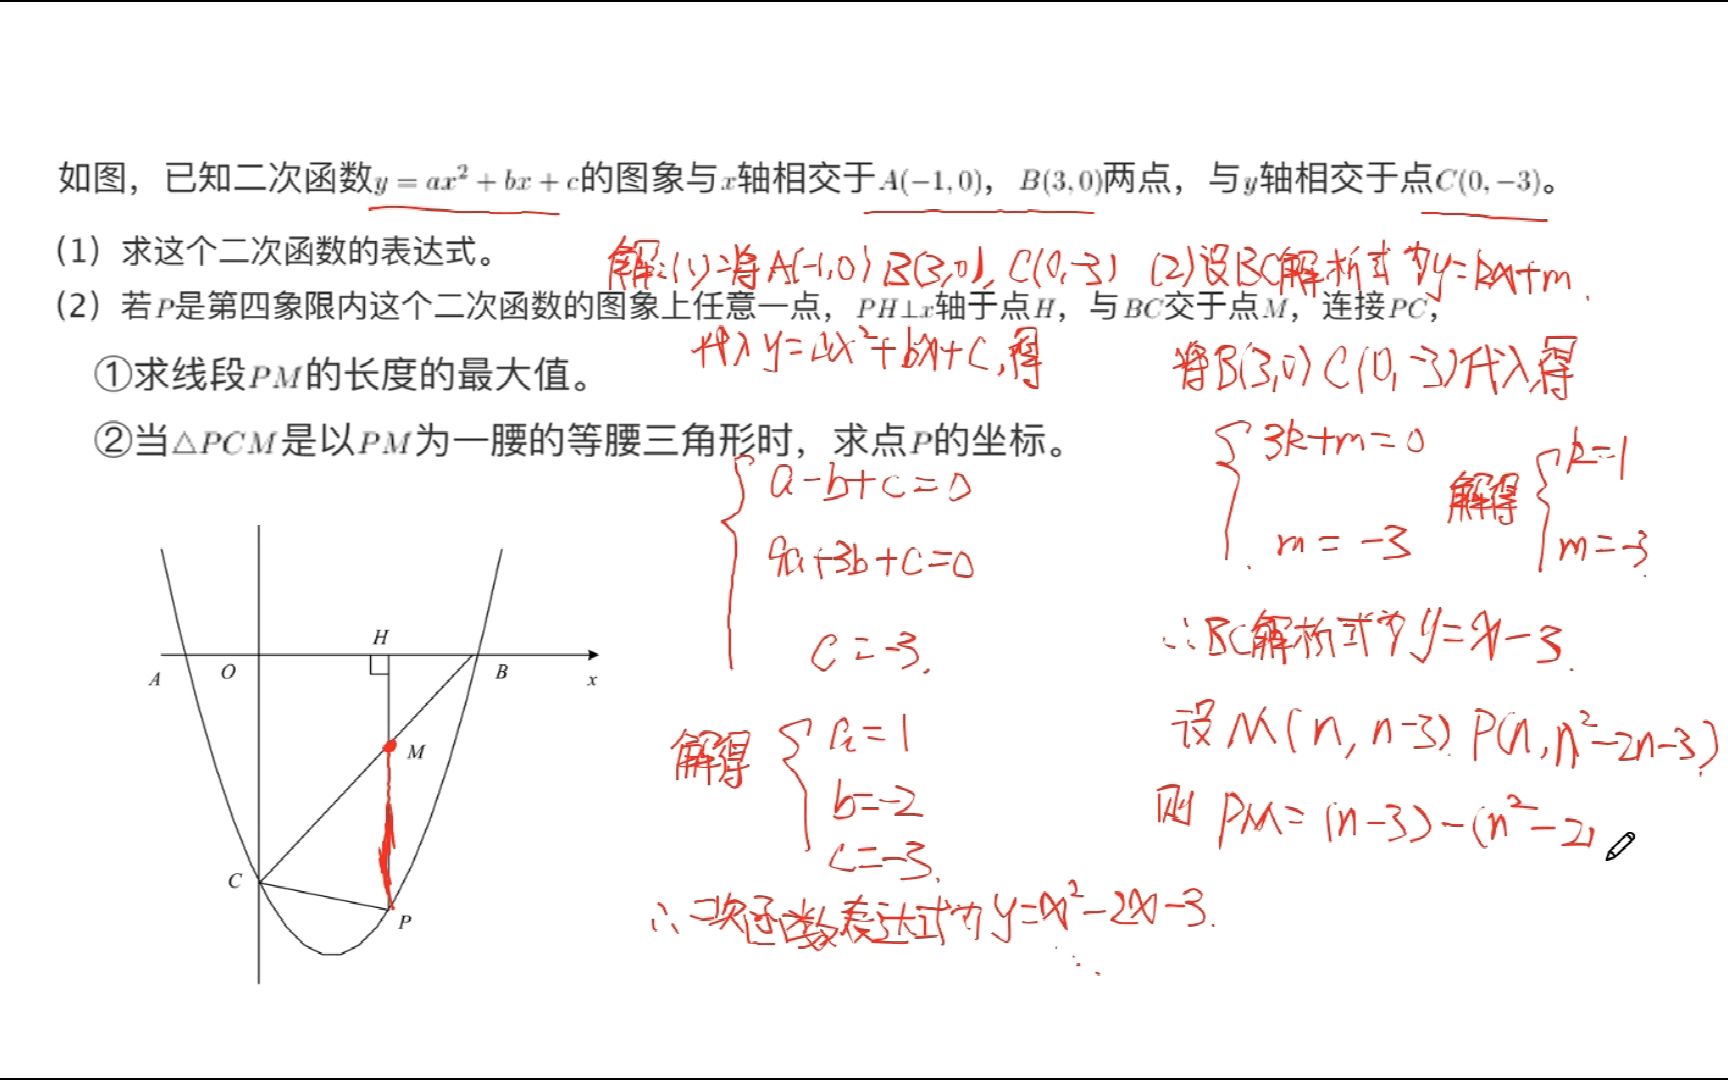 如图，已知二次函数y = ax² + bx + c的图象与x轴相交于A(−1,0)，B(3,0)两点，与y轴相交于点C(0,−3)。
（1）求这个二次函数的表达式。
（2）若P是第四象限内这个二次函数的图象上任意一点，PH⊥x轴于点H，与BC交于点M，连接PC，
①求线段PM的长度的最大值。
②当△PCM是以PM为一腰的等腰三角形时，求点P的坐标。
H
A
O
B
x
M
C
P
解:(1)将A(-1,0) B(3,0), C(0,-3)
代入y=ax²+bx+c,得
a-b+c=0
9a+3b+c=0
c=-3.
解得
a=1
b=-2
c=-3.
∴二次函数表达式为y=x²-2x-3.
(2)设BC解析式为y=kx+m.
将B(3,0) C(0,-3)代入得
3k+m=0
m=-3
解得
k=1
m=-3
∴BC解析式为y=x-3.
设M(n, n-3) P(n, n²-2n-3)
则 PM=(n-3)-(n²-2